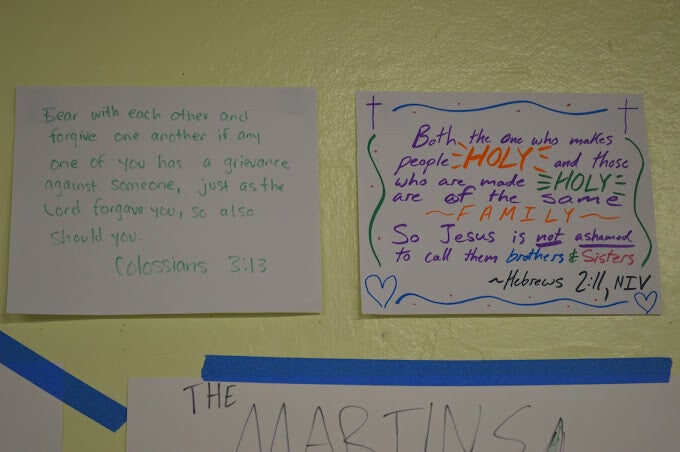 Bear with each other and
forgive one another if any
one of you has a grievance
against someone, just as the
Lord forgave you, so also
should you.
Colossians 3:13
Both the one who makes
people HOLY and those
who are made HOLY
are of the same
~FAMILY~
So Jesus is not ashamed
to call them brothers & Sisters
~Hebrews 2:11, NIV
THE MARTINS